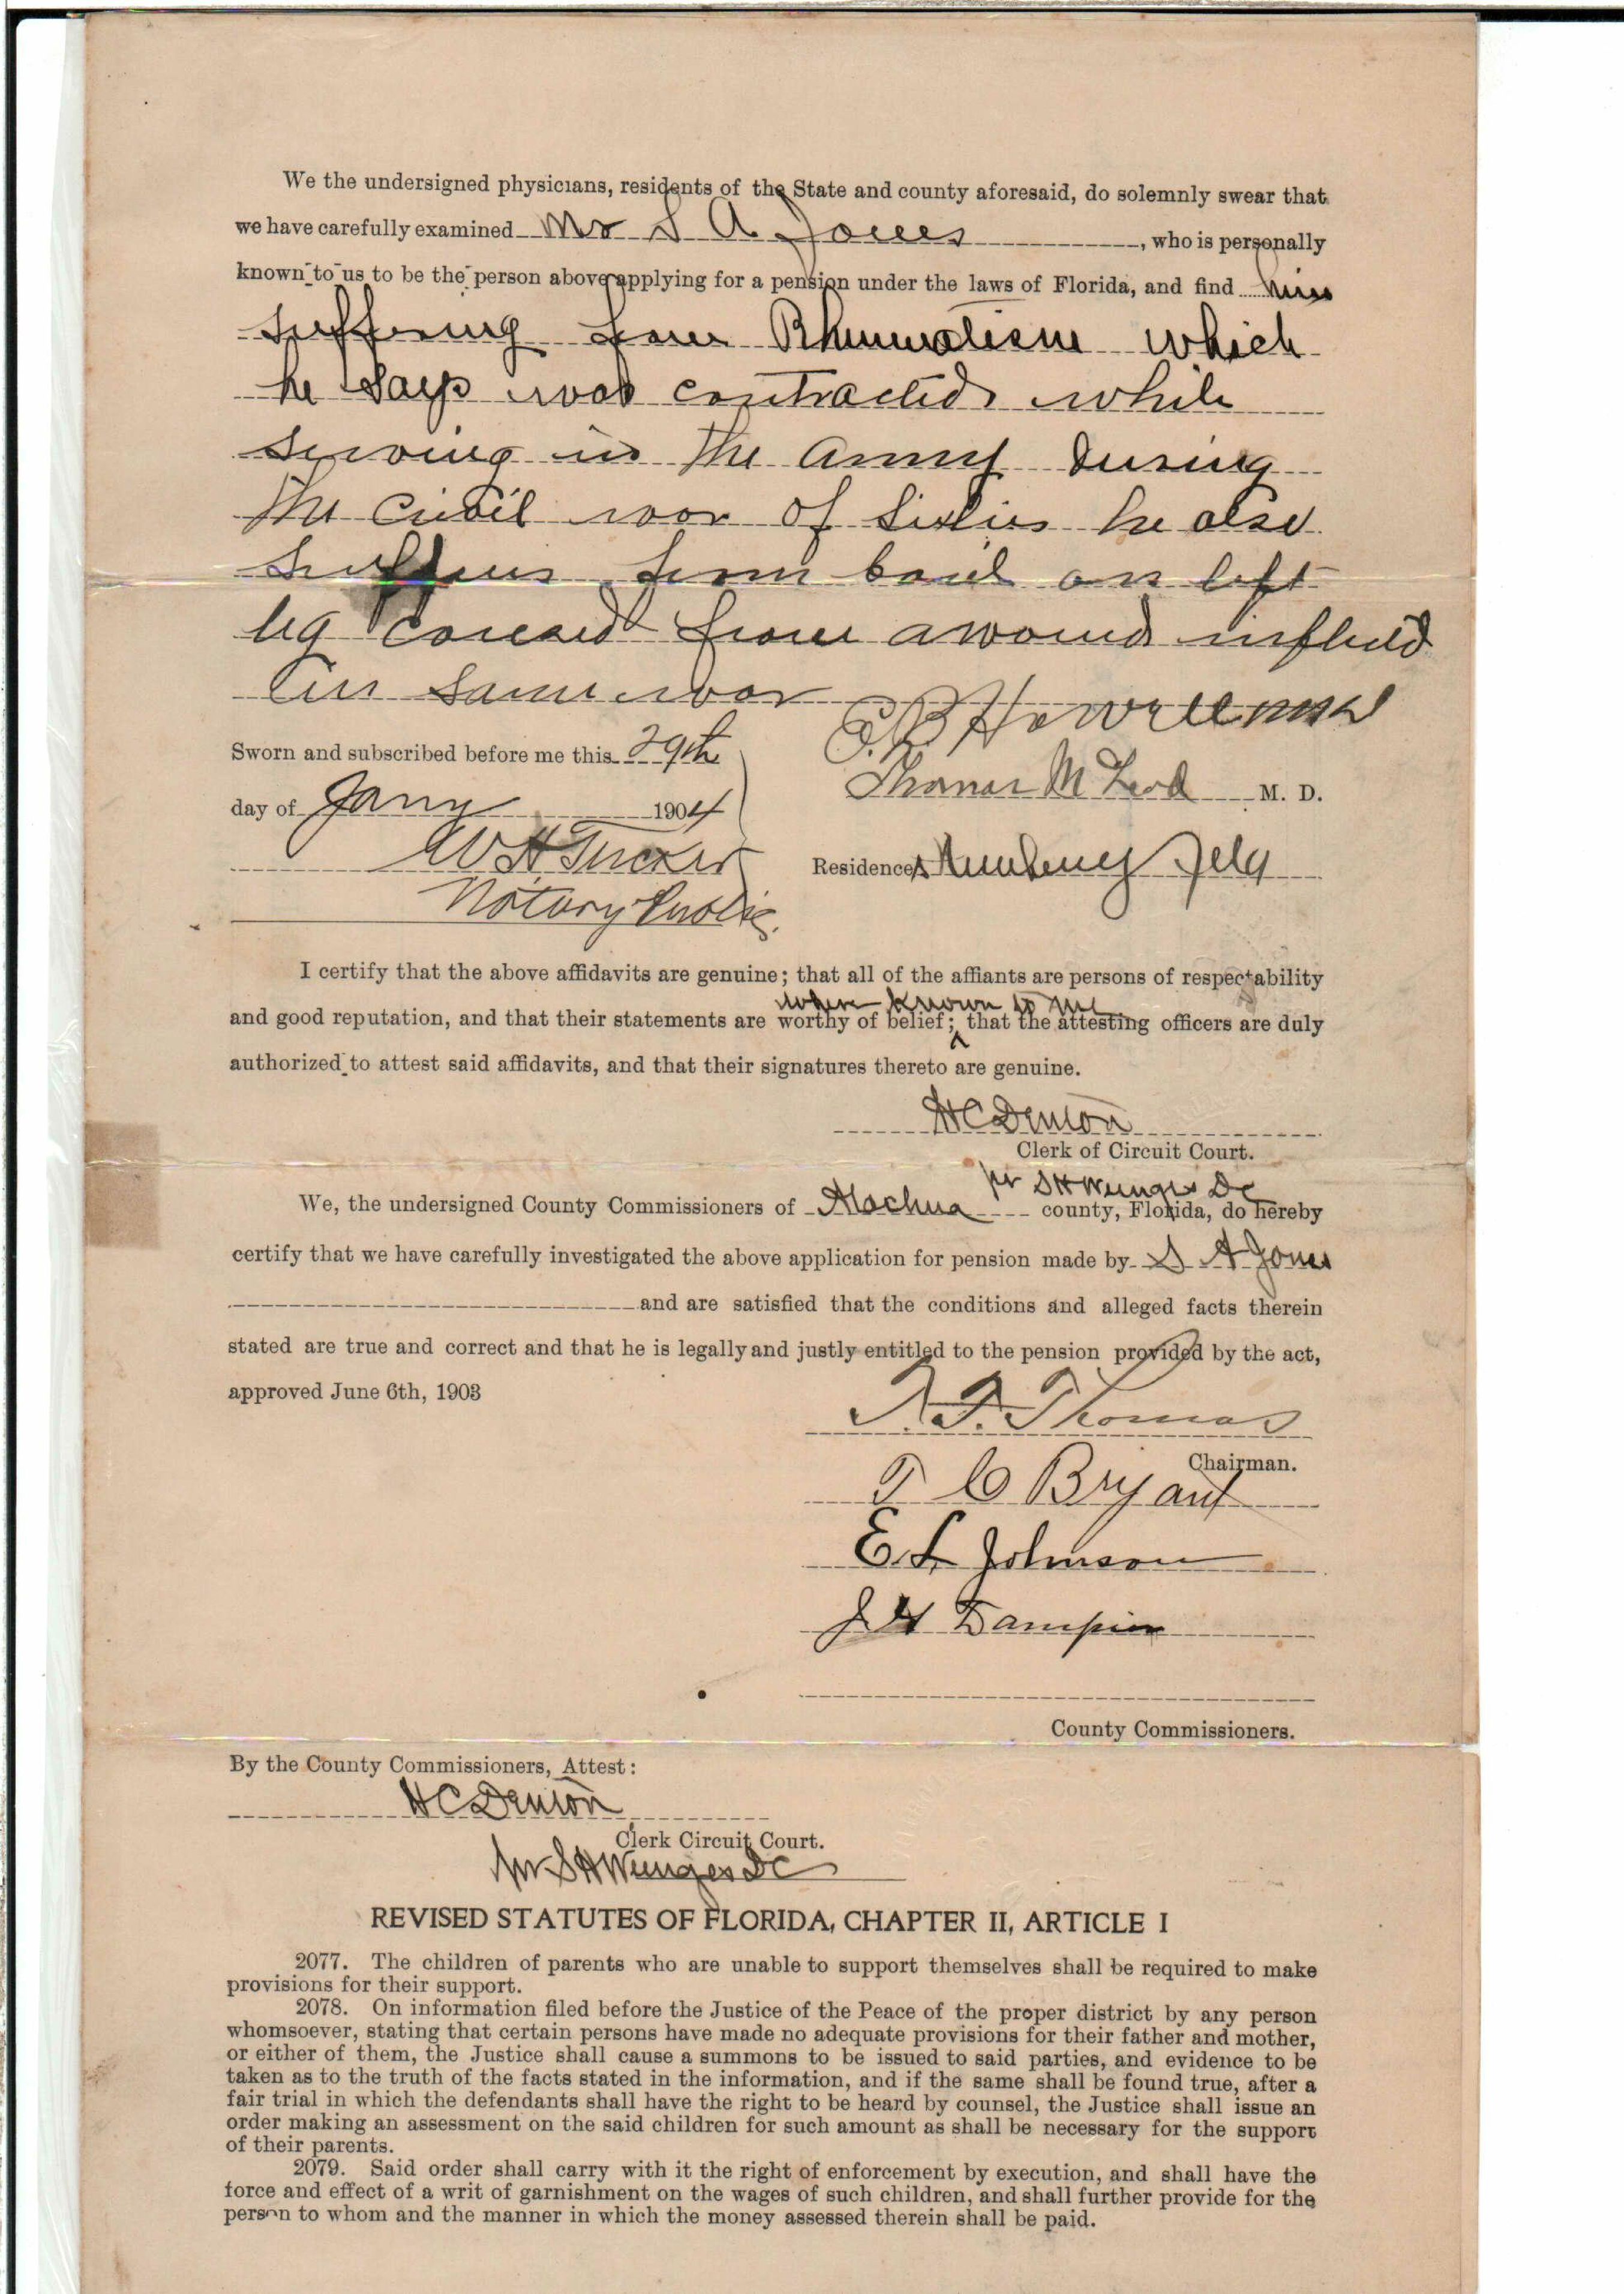 We the undersigned physicians, residents of the State and county aforesaid, do solemnly swear that
we have carefully examined Mr S A Jones, who is personally
known to us to be the person above applying for a pension under the laws of Florida, and find him
suffering from Rhumatism which
he says was contracted while
serving in the army During
the Civil war of Sixties he also
suffers from boil on left
leg caused from a wound
in same war
Sworn and subscribed before me this 29th
Thomas McLeod M. D.
day of Jany 1904
W H Tucker
Residences
Notary Public.
I certify that the above affidavits are genuine; that all of the affiants are persons of respectability
where known to me
and good reputation, and that their statements are worthy of belief; that the attesting officers are duly
authorized to attest said affidavits, and that their signatures thereto are genuine.
H C Denton
Clerk of Circuit Court.
per S H Wienges DC
We, the undersigned County Commissioners of Alachua county, Florida, do hereby
certify that we have carefully investigated the above application for pension made by S A Jones
and are satisfied that the conditions and alleged facts therein
stated are true and correct and that he is legally and justly entitled to the pension provided by the act,
approved June 6th, 1903
Thomas
Chairman.
T C Bryant
E. L. Johnson
J H Dampier
County Commissioners.
By the County Commissioners, Attest:
H C Denton
Clerk Circuit Court.
per S H Wienges DC
REVISED STATUTES OF FLORIDA, CHAPTER II, ARTICLE I
2077. The children of parents who are unable to support themselves shall be required to make
provisions for their support.
2078. On information filed before the Justice of the Peace of the proper district by any person
whomsoever, stating that certain persons have made no adequate provisions for their father and mother,
or either of them, the Justice shall cause a summons to be issued to said parties, and evidence to be
taken as to the truth of the facts stated in the information, and if the same shall be found true, after a
fair trial in which the defendants shall have the right to be heard by counsel, the Justice shall issue an
order making an assessment on the said children for such amount as shall be necessary for the support
of their parents.
2079. Said order shall carry with it the right of enforcement by execution, and shall have the
force and effect of a writ of garnishment on the wages of such children, and shall further provide for the
person to whom and the manner in which the money assessed therein shall be paid.